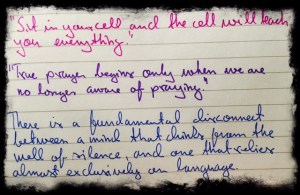 "Sit in your cell and the cell will teach
you everything."
"True prayer begins only when we are
no longer aware of praying."
There is a fundamental disconnect
between a mind that drinks from the
well of silence, and one that relies
almost exclusively on language.